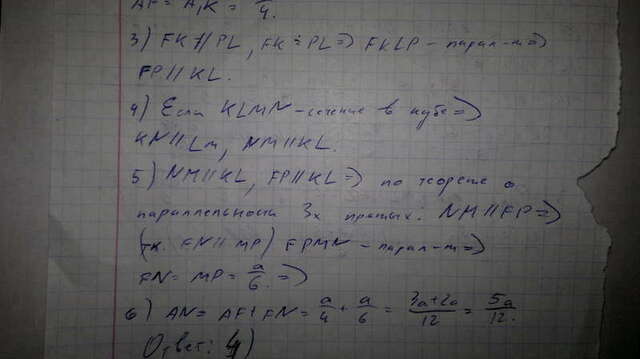 AF = A₁K = a/4.
3) FK ∦ PL, FK = PL => FKLP - парал-м =>
FP || KL.
4) Если KLMN - сечение в кубе =>
KN || LM, NM || KL.
5) NM || KL, FP || KL => по теореме о
параллельности 3х прямых: NM || FP =>
(т.к. FN || MP) FPMN - парал-м =>
FN = MP = a/6. =>
6) AN = AF + FN = a/4 + a/6 = (3a+2a)/12 = 5a/12.
Ответ: 4)